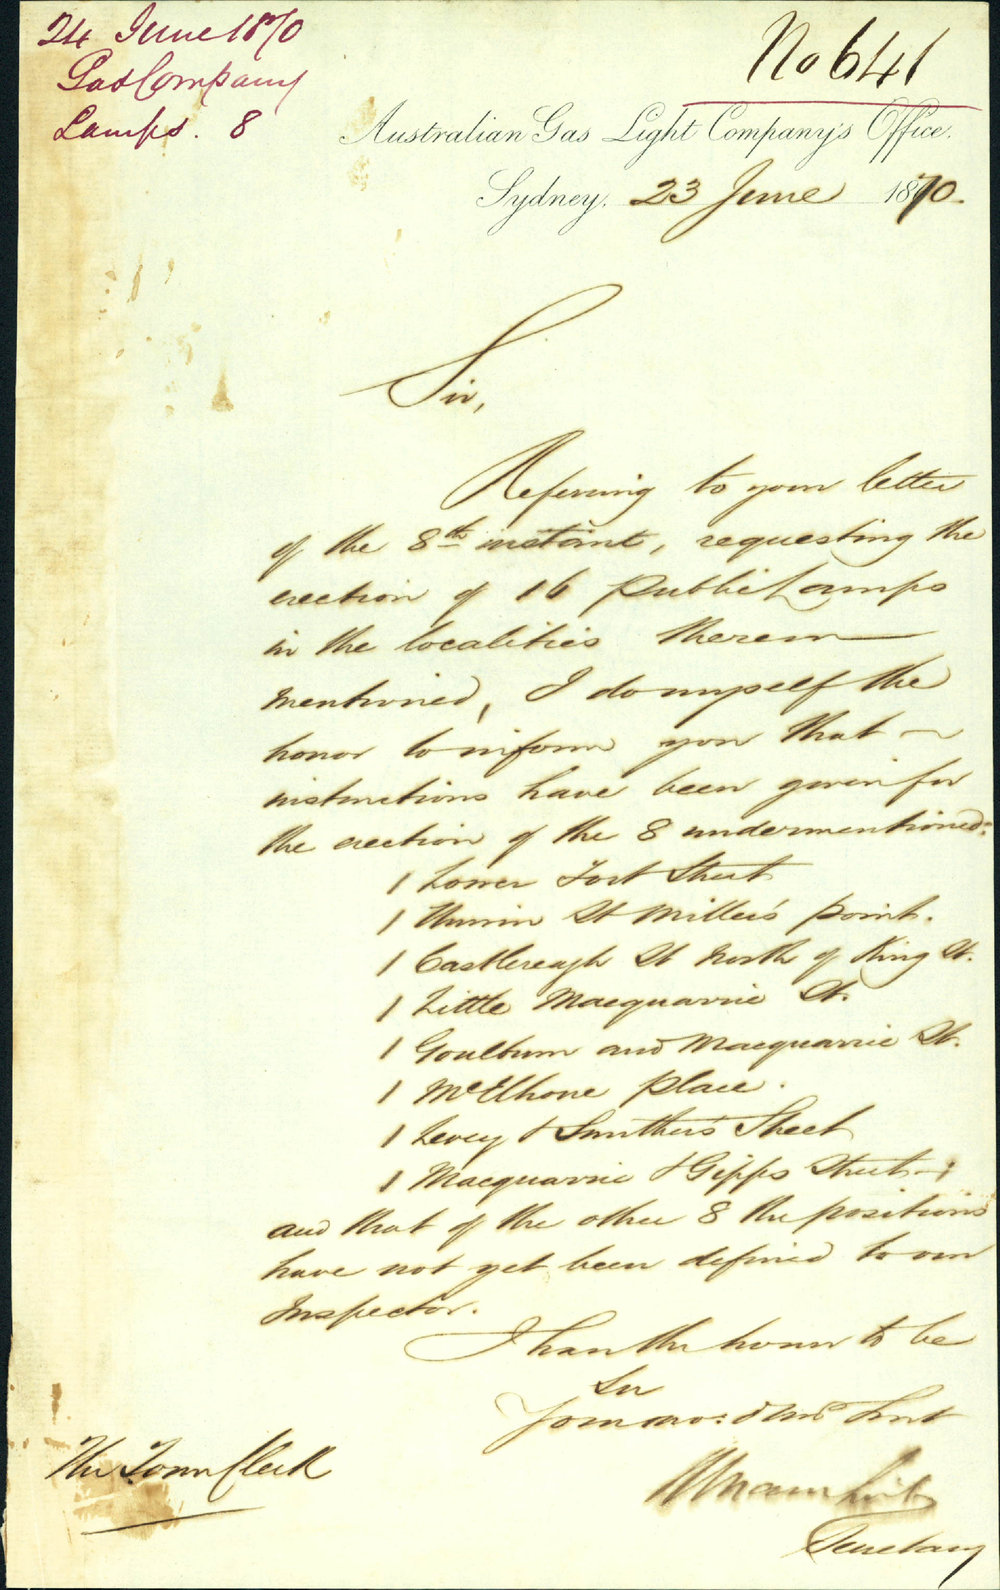 24 June 1870
Gas Company
Lamps. 8
No 641
Australian Gas Light Company's Office.
Sydney. 23 June 1870.
Sir,
Referring to your letter
of the 8th instant, requesting the
erection of 16 Public Lamps
in the localities therein
mentioned, I do myself the
honor to inform you that
instructions have been given for
the erection of the 8 undermentioned:
1 Lower Fort Street
1 St Miller's point.
1 Castlereagh St North of King St.
1 Little Macquarrie St.
1 Goulburn and Macquarrie St.
1 McElhone Place.
1 Levey & Smithers Street
1 Macquarrie & Gipps Street;
and that of the other 8 the positions
have not yet been defined to our
Inspector.
I have the honor to be
Sir
Your mo: Servt
Secretary
The Town Clerk